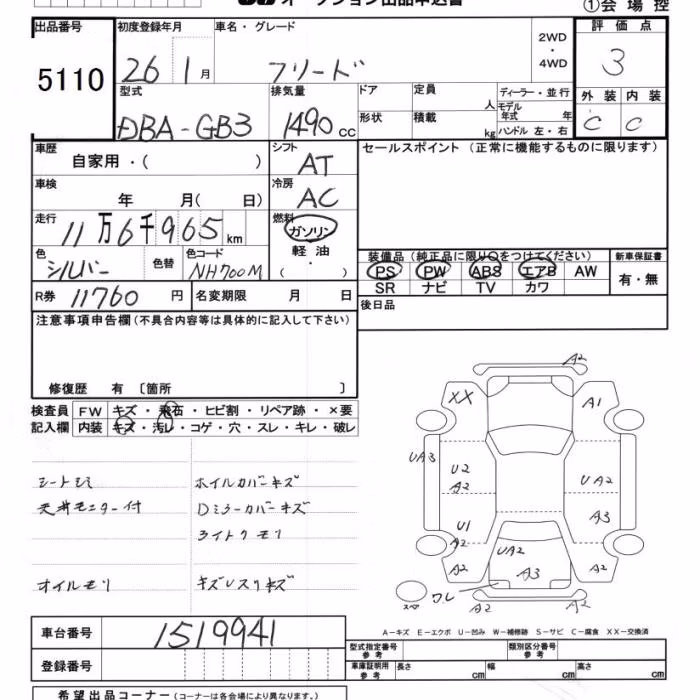 オークション出品申込書
①会場控
出品番号
5110
初度登録年月
26 1月
車名・グレード
フリード
2WD・4WD
評価点
3
型式
DBA-GB3
排気量
1490 cc
ドア
形状
定員
人
積載
kg
ディーラー・並行
モデル年式 年
ハンドル 左・右
外装 内装
C C
車歴
自家用・( )
シフト
AT
セールスポイント(正常に機能するものに限ります)
車検
年 月( 日)
冷房
AC
走行
11万6千965km
燃料
ガソリン
軽油
・
( )
色
シルバー
色替
色コード
NH700M
装備品(純正品に限り○をつけてください)
PS PW ABS エアB AW
SR ナビ TV カワ
新車保証書
有・無
R券 11760 円
名変期限 月 日
後日品
注意事項申告欄(不具合内容等は具体的に記入して下さい)
修復歴 有 〔箇所 〕
検査員記入欄
FW キズ・飛石・ヒビ割・リペア跡・×要
内装 キズ・汚レ・コゲ・穴・スレ・キレ・破レ
ホイルカバーキズ
天井モニター付 Dミラーカバーキズ
ライトクモリ
オイルモリ キズUスリキズ
A2
XX A1
UA3
U2 A2
UA2
A3
U1 A2
UA2
A2 A3 A2
ワレ
A2 A2
A−キズ E−エクボ U−凹み W−補修跡 S−サビ C−腐食 XX−交換済
車台番号
1519941
登録番号
型式指定番号 参考
類別区分番号 参考
車庫証明用 参考
長さ cm
幅 cm
高さ cm
希望出品コーナー(コーナーは各会場により異なります。)